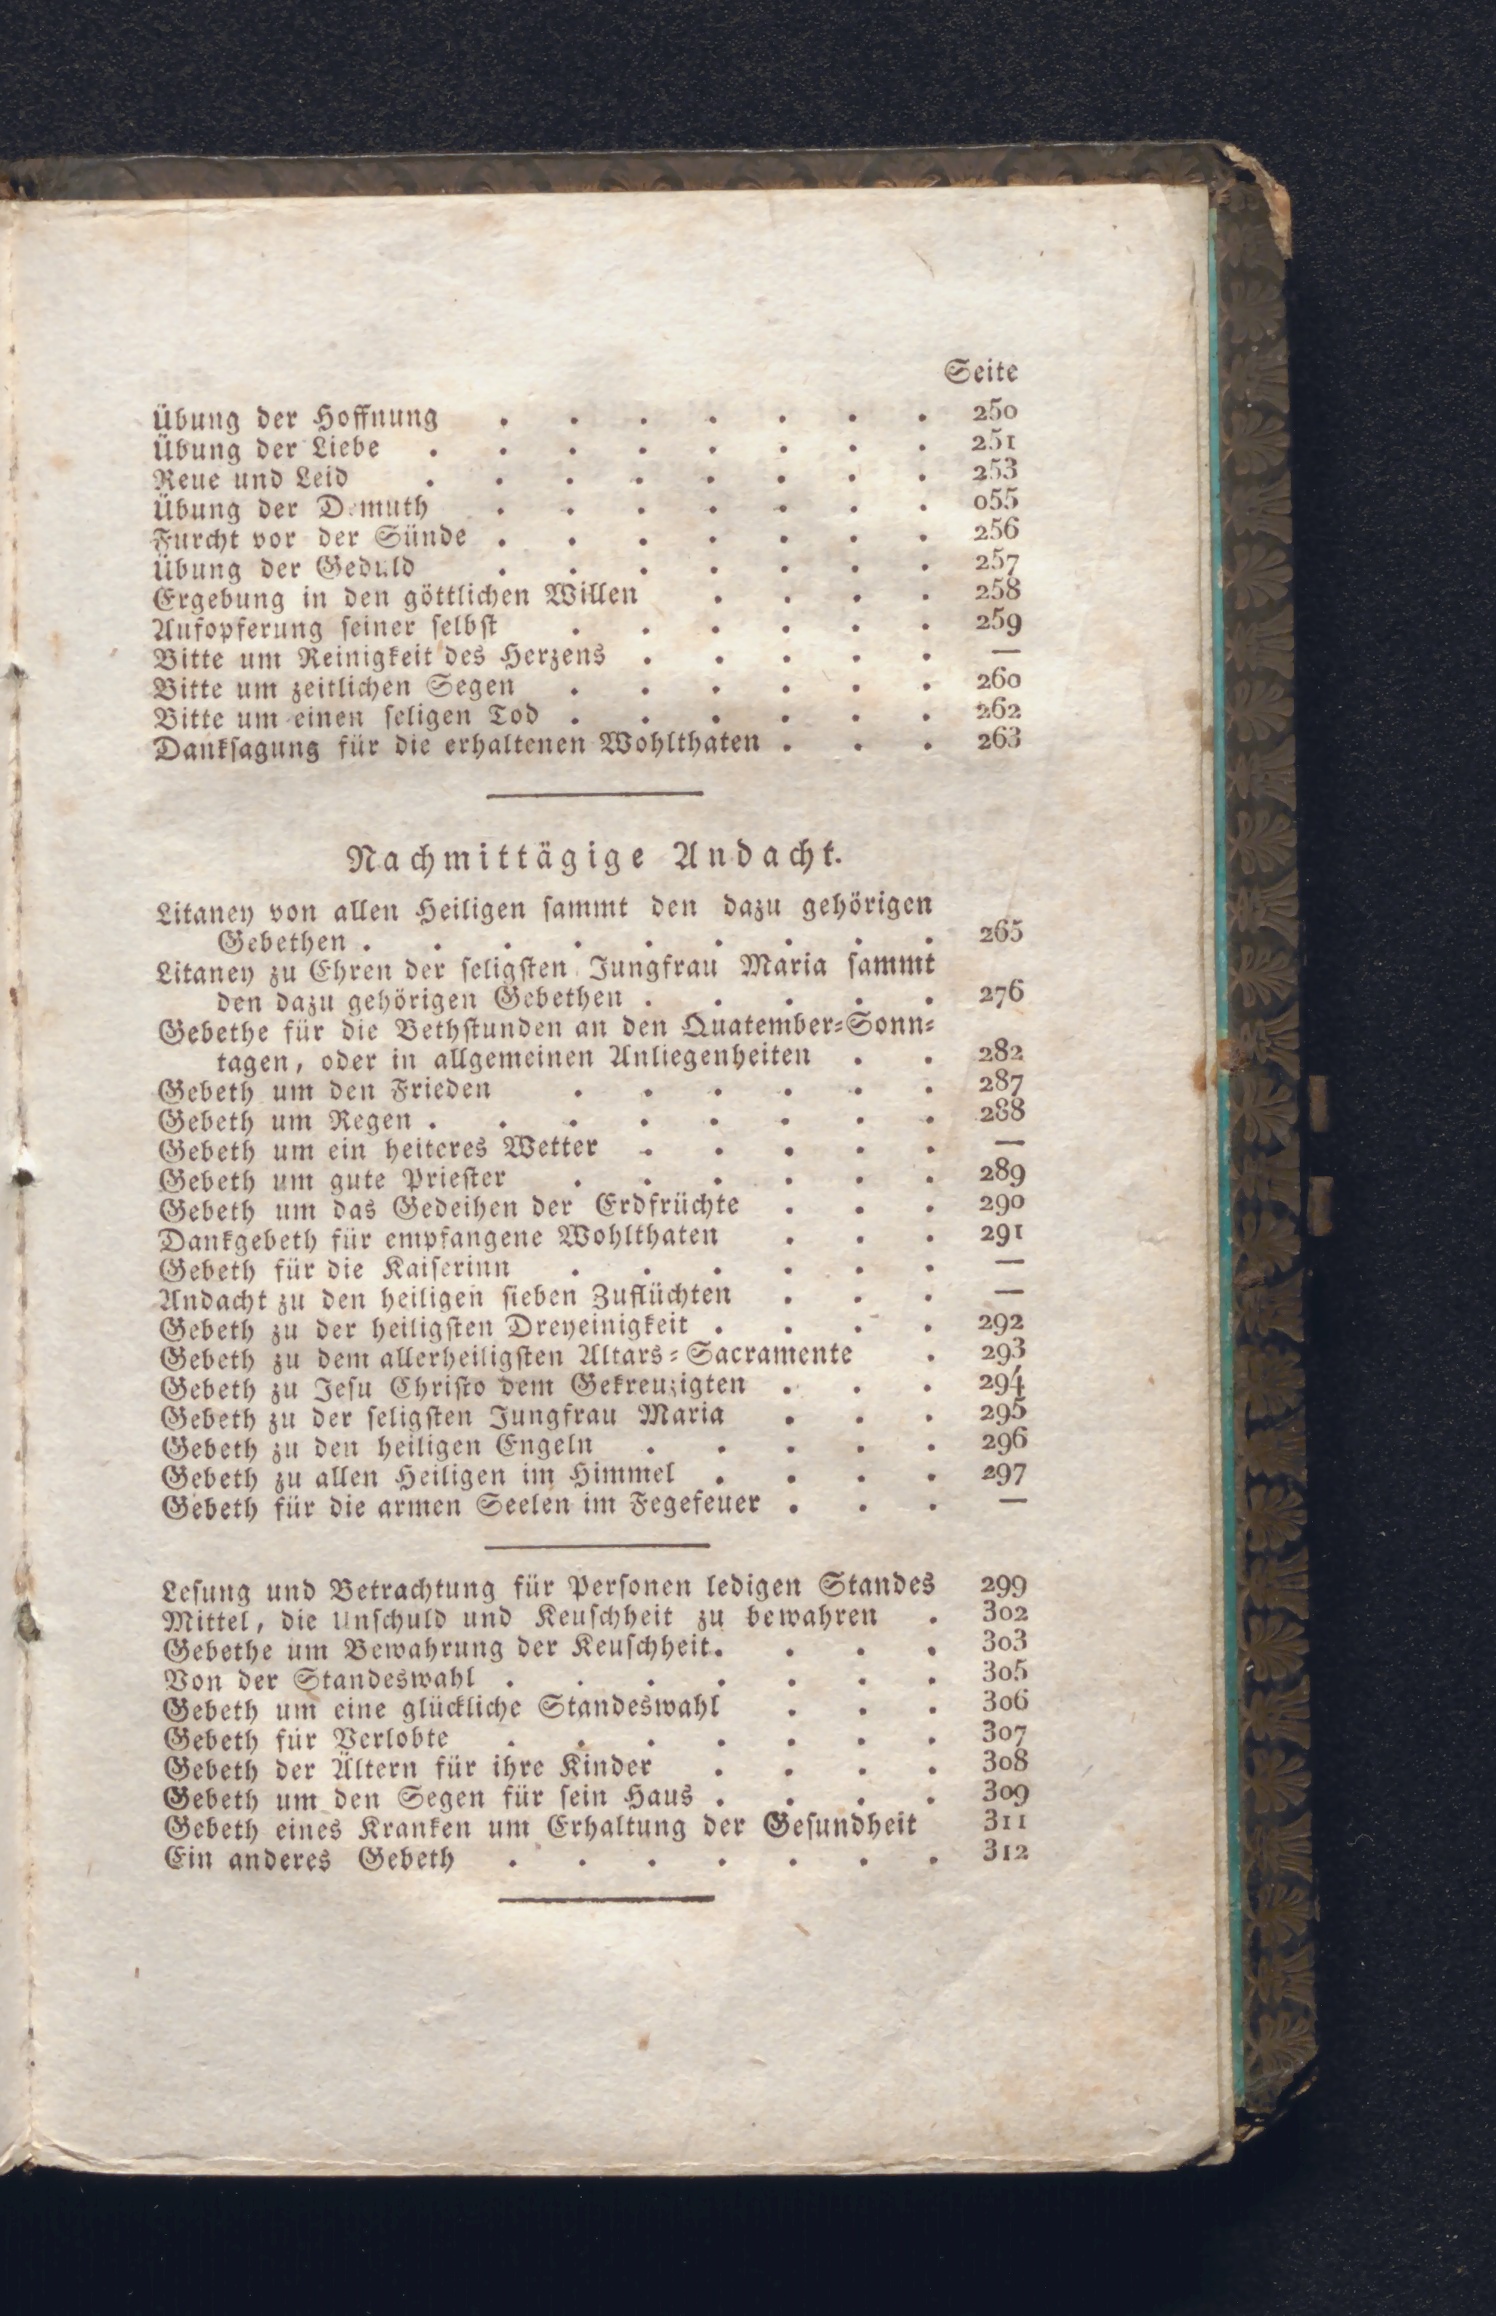 Seite
Übung der Hoffnung . . . . . . . 250
Übung der Liebe . . . . . . . . 251
Reue und Leid . . . . . . . . 253
Übung der Demuth . . . . . . . 055
Furcht vor der Sünde . . . . . . . 256
Übung der Geduld . . . . . . . 257
Ergebung in den göttlichen Willen . . . . 258
Aufopferung seiner selbst . . . . . . 259
Bitte um Reinigkeit des Herzens . . . . . —
Bitte um zeitlichen Segen . . . . . . 260
Bitte um einen seligen Tod . . . . . . 262
Danksagung für die erhaltenen Wohlthaten . . . 263
Nachmittägige Andacht.
Litaney von allen Heiligen sammt den dazu gehörigen
Gebethen . . . . . . . . . 265
Litaney zu Ehren der seligsten Jungfrau Maria sammt
den dazu gehörigen Gebethen . . . . . 276
Gebethe für die Bethstunden an den Quatember-Sonn-
tagen, oder in allgemeinen Anliegenheiten . . 282
Gebeth um den Frieden . . . . . . 287
Gebeth um Regen . . . . . . . . 288
Gebeth um ein heiteres Wetter . . . . . —
Gebeth um gute Priester . . . . . . 289
Gebeth um das Gedeihen der Erdfrüchte . . . 290
Dankgebeth für empfangene Wohlthaten . . . 291
Gebeth für die Kaiserinn . . . . . . —
Andacht zu den heiligen sieben Zuflüchten . . . —
Gebeth zu der heiligsten Dreyeinigkeit . . . . 292
Gebeth zu dem allerheiligsten Altars-Sacramente . 293
Gebeth zu Jesu Christo dem Gekreuzigten . . . 294
Gebeth zu der seligsten Jungfrau Maria . . . 295
Gebeth zu den heiligen Engeln . . . . . 296
Gebeth zu allen Heiligen im Himmel . . . . 297
Gebeth für die armen Seelen im Fegefeuer . . . —
Lesung und Betrachtung für Personen ledigen Standes 299
Mittel, die Unschuld und Keuschheit zu bewahren . 302
Gebethe um Bewahrung der Keuschheit . . . . 303
Von der Standeswahl . . . . . . . 305
Gebeth um eine glückliche Standeswahl . . . 306
Gebeth für Verlobte . . . . . . . 307
Gebeth der Ältern für ihre Kinder . . . . 308
Gebeth um den Segen für sein Haus . . . . 309
Gebeth eines Kranken um Erhaltung der Gesundheit 311
Ein anderes Gebeth . . . . . . . 312